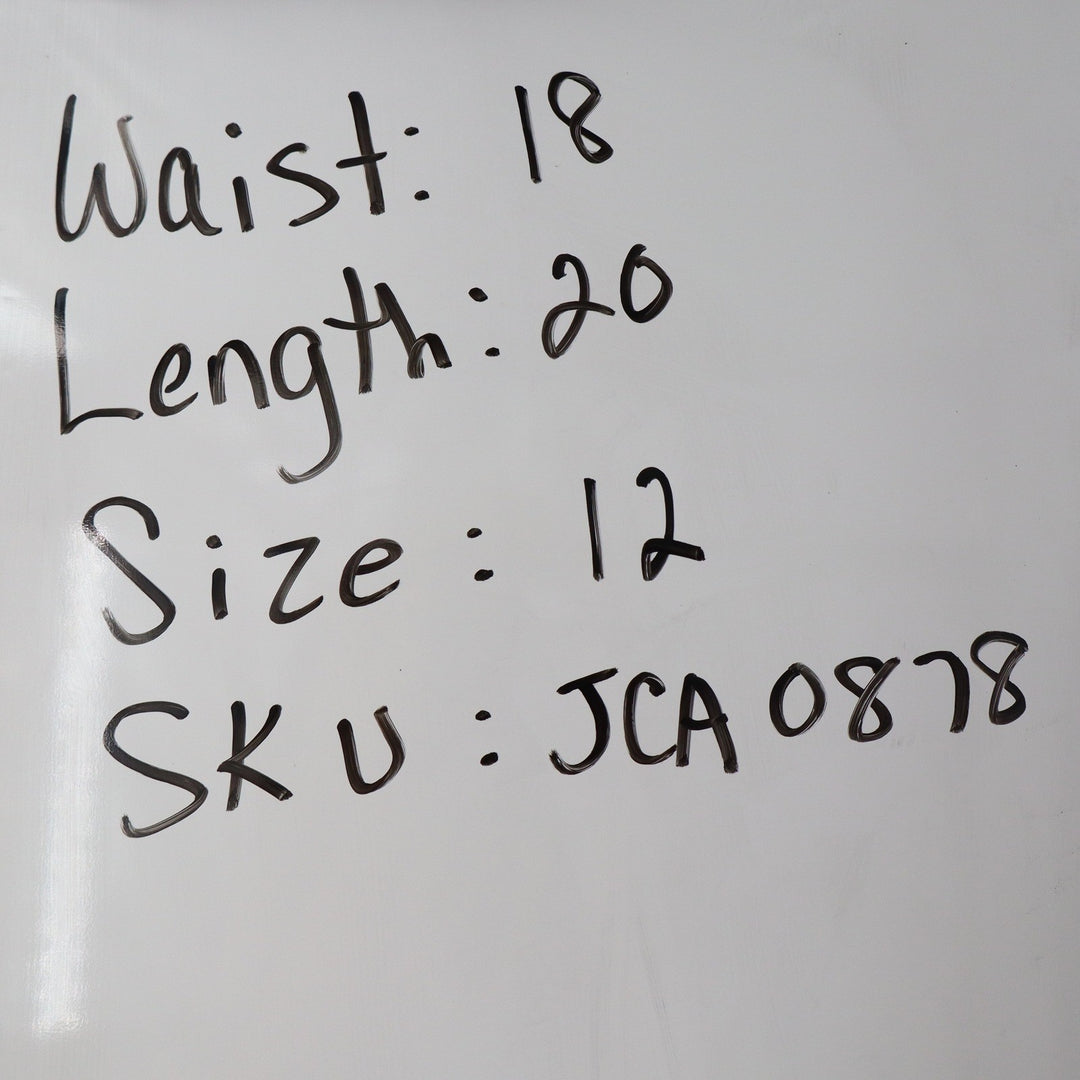 Waist: 18
Length: 20
Size: 12
SKU: JCA 0878